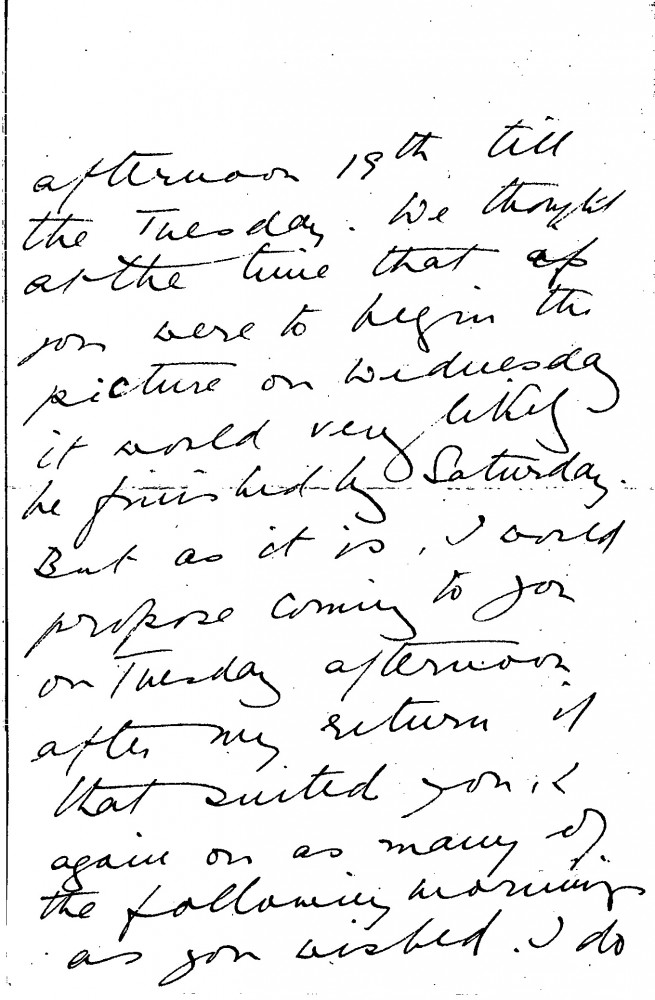 afternoon 19th till
the Tuesday. We thought
at the time that as
you were to begin the
picture on Wednesday
it would very likely
be finished by Saturday.
But as it is, I would
propose coming to you
on Tuesday afternoon
after my return if
that suited you, &
again on as many of
the following mornings
as you wished. I do